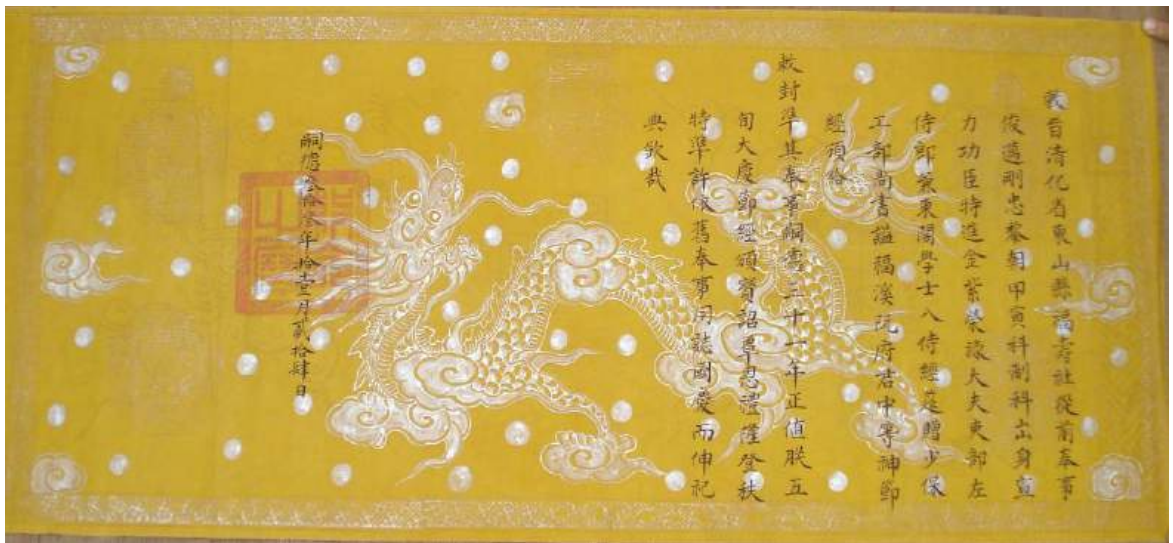 敕旨清化省東山縣福壽社從前奉事
俊邁剛忠黎朝甲寅科制科出身宣
力功臣特進金紫榮祿大夫吏部左
侍郎兼東閣學士入侍經筵贈少保
工部尚書謚福溪阮府君中等神節
經頒給
敕封準其奉事嗣德三十一年正值朕五
旬大慶節經頒寶詔覃恩禮隆登秩
特準許依舊奉事用誌國慶而伸祀
典欽哉
嗣德叁拾叁年拾壹月貳拾肆日